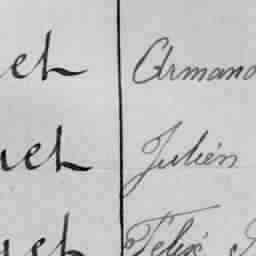 et Armand
uet Julien
uet Félix